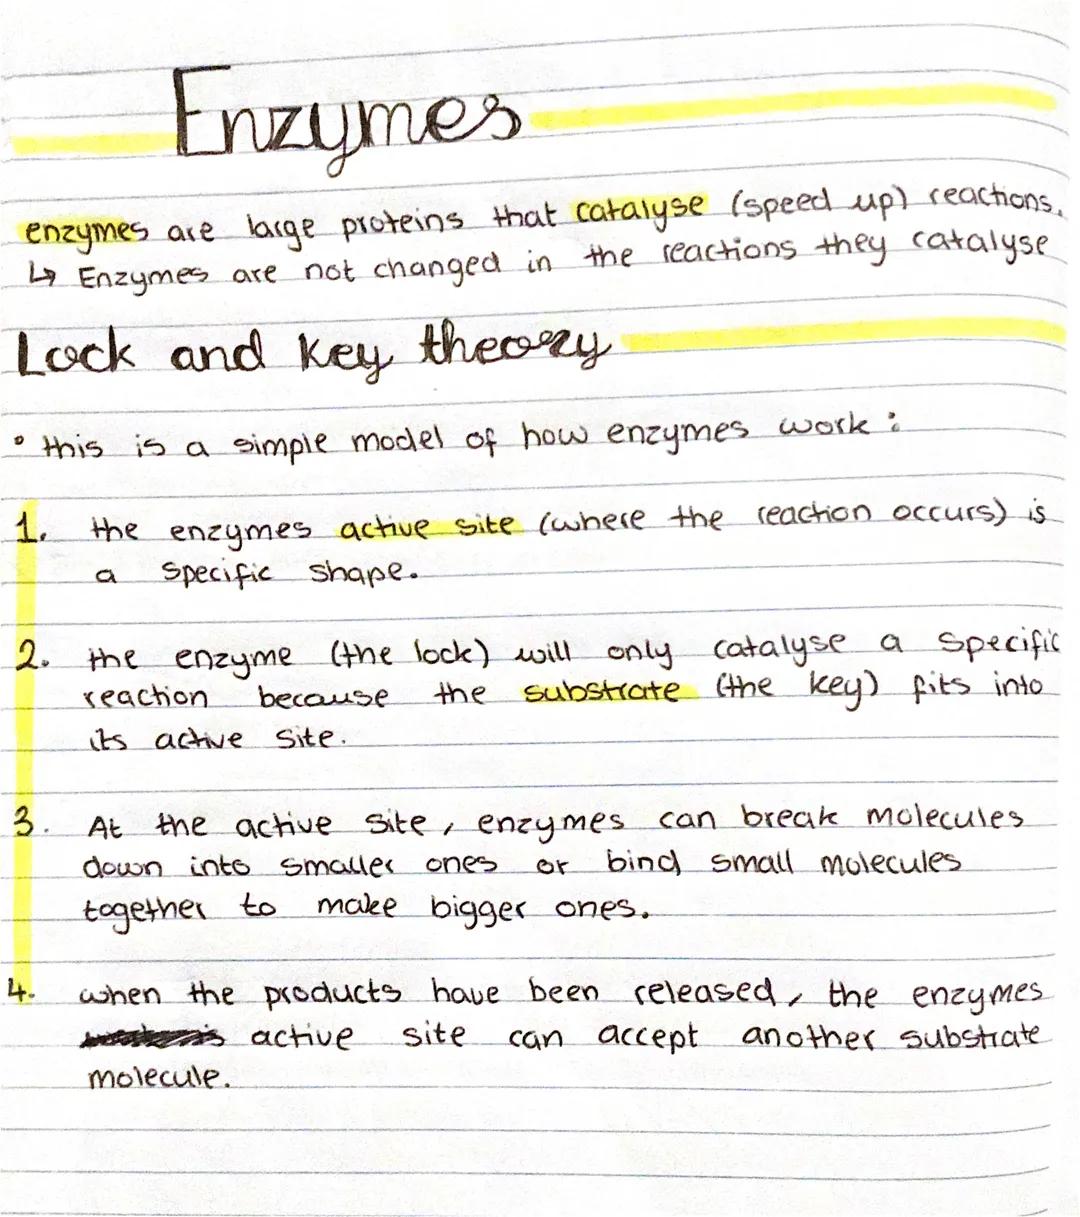 Enzymes
enzymes are large proteins that catalyse (speed up) reactions.
↳ Enzymes are not changed in the reactions they catalyse
Lock and key theory
• this is a simple model of how enzymes work :
1. the enzymes active site (where the reaction occurs) is
a specific shape.
2. the enzyme (the lock) will only catalyse a specific
reaction because the substrate (the key) fits into
its active site.
3. At the active site, enzymes can break molecules
down into smaller ones or bind small molecules
together to make bigger ones.
4. when the products have been released, the enzymes
active site can accept another substrate
molecule.